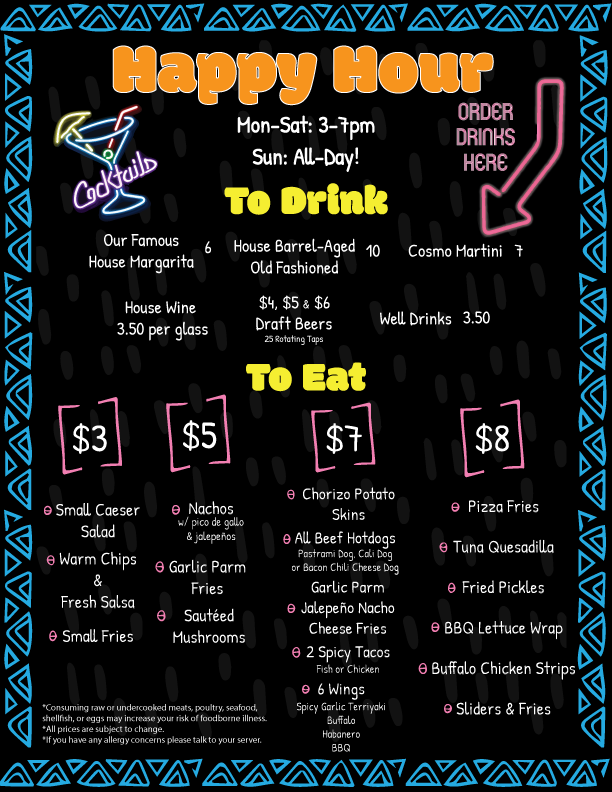 Happy Hour
Mon-Sat: 3-7pm
Sun: All-Day!
Cocktails
ORDER
DRINKS
HERE
To Drink
Our Famous
House Margarita 6
House Barrel-Aged
Old Fashioned 10
Cosmo Martini 7
House Wine
3.50 per glass
$4, $5 & $6
Draft Beers
25 Rotating Taps
Well Drinks 3.50
To Eat
$3
Small Caeser
Salad
Warm Chips
&
Fresh Salsa
Small Fries
$5
Nachos
w/ pico de gallo
& jalepeños
Garlic Parm
Fries
Sautéed
Mushrooms
$7
Chorizo Potato
Skins
All Beef Hotdogs
Pastrami Dog, Cali Dog
or Bacon Chili Cheese Dog
Garlic Parm
Jalepeño Nacho
Cheese Fries
2 Spicy Tacos
Fish or Chicken
6 Wings
Spicy Garlic Terriyaki
Buffalo
Habanero
BBQ
$8
Pizza Fries
Tuna Quesadilla
Fried Pickles
BBQ Lettuce Wrap
Buffalo Chicken Strips
Sliders & Fries
*Consuming raw or undercooked meats, poultry, seafood,
shellfish, or eggs may increase your risk of foodborne illness.
*All prices are subject to change.
*If you have any allergy concerns please talk to your server.